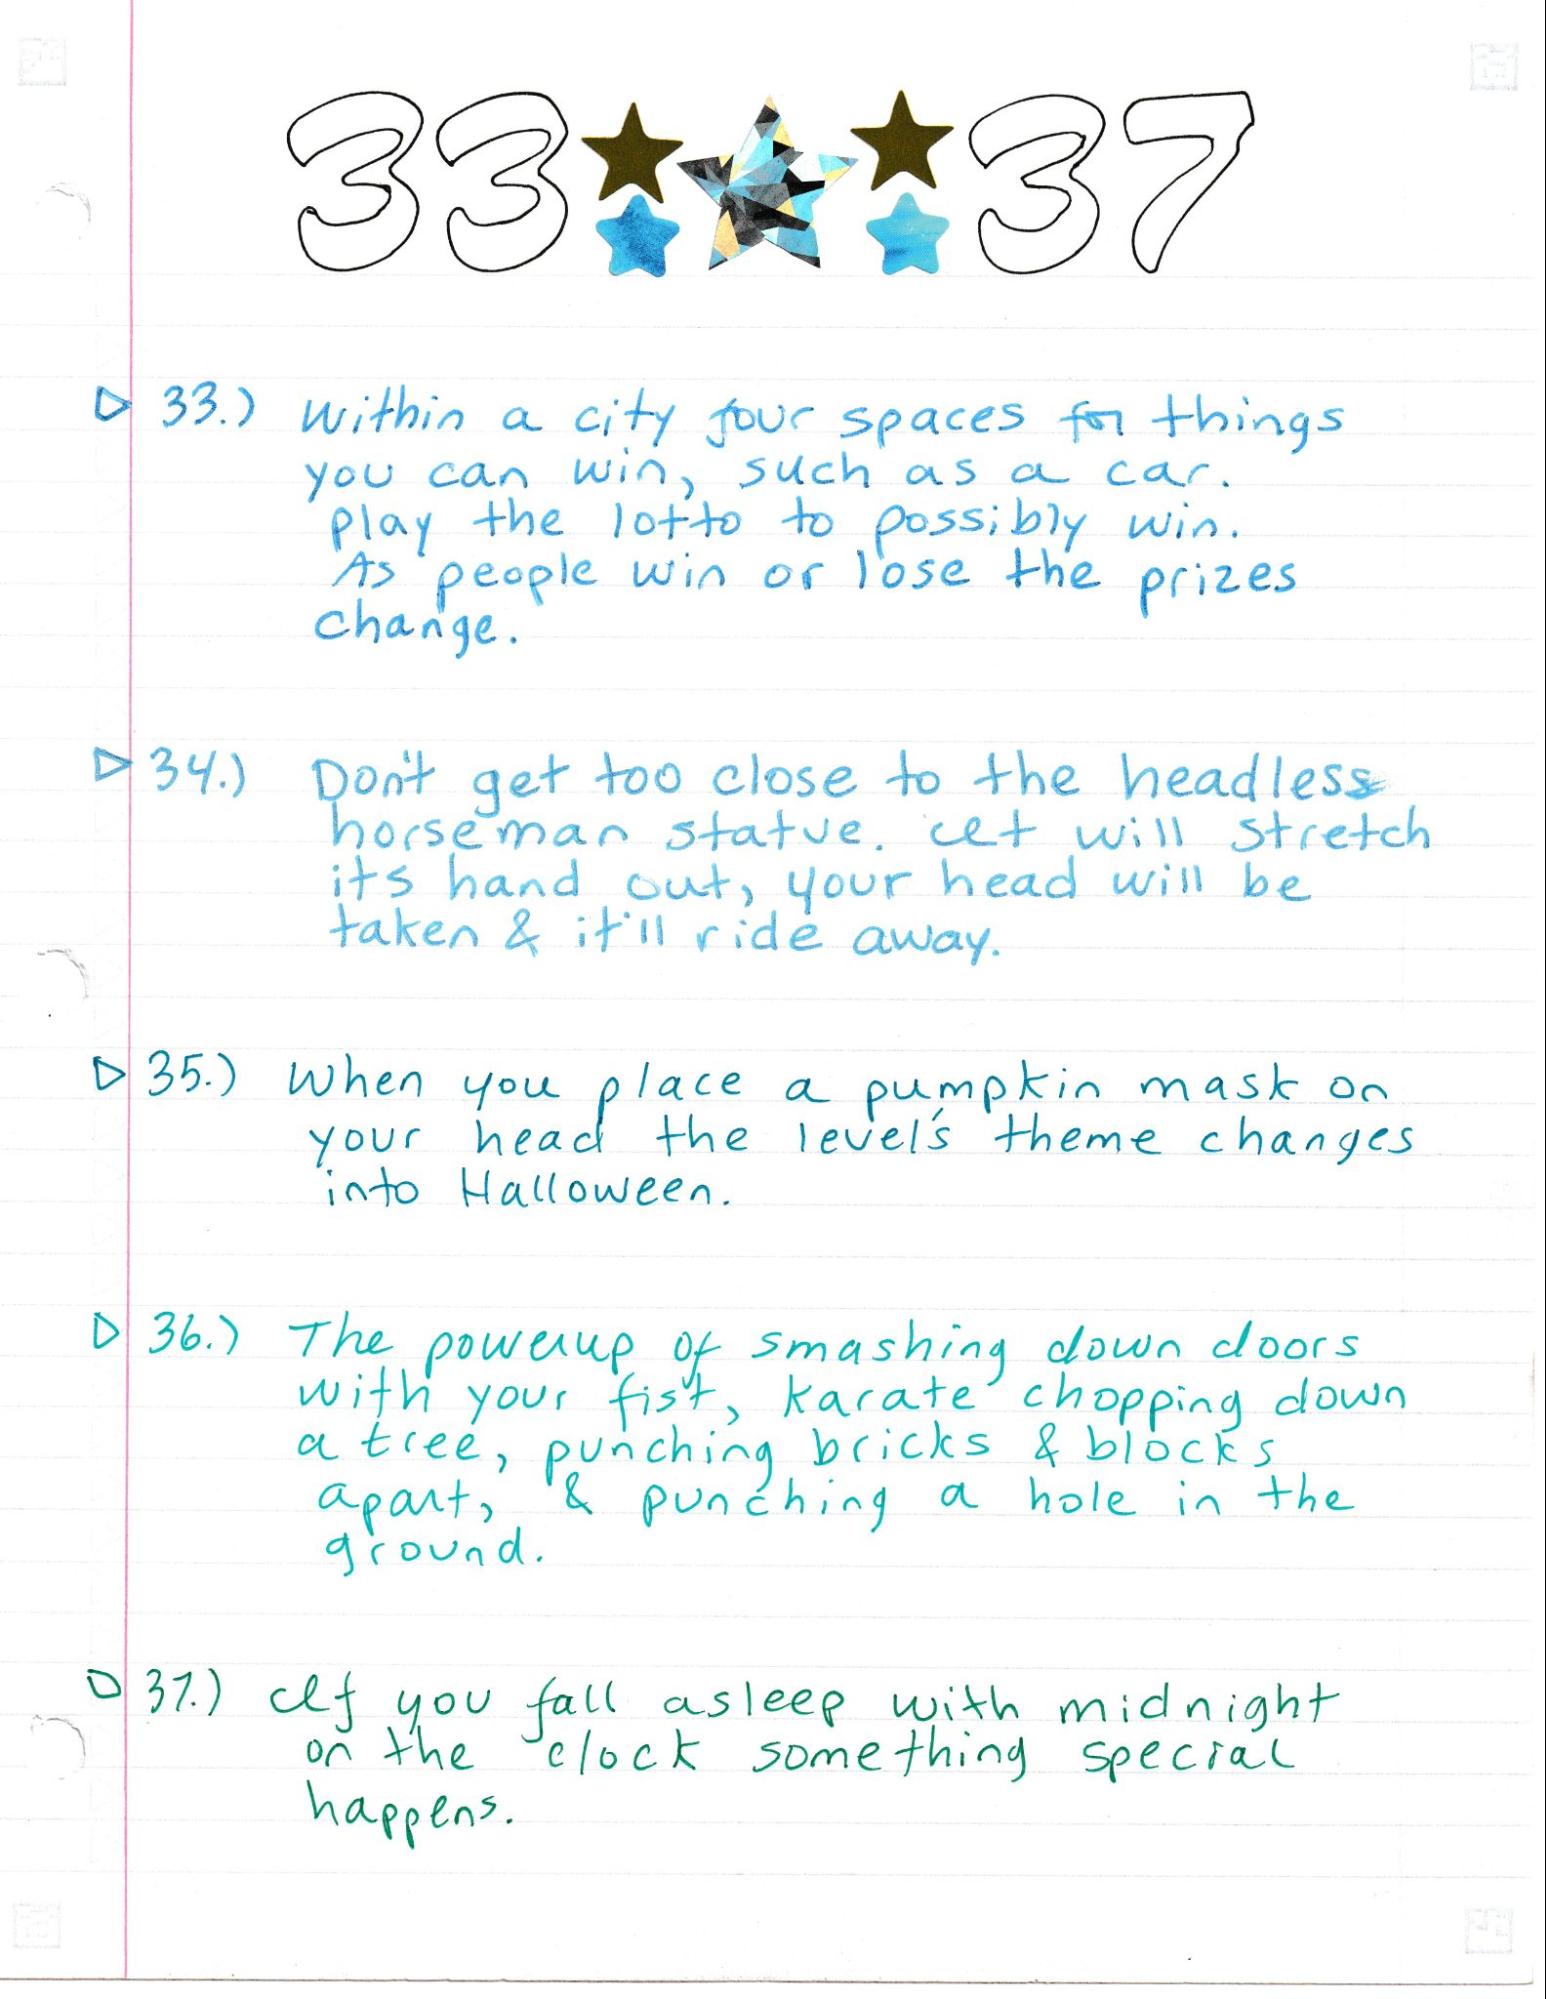 33 37
33.) Within a city four spaces for things
you can win, such as a car.
Play the lotto to possibly win.
As people win or lose the prizes
change.
34.) Don't get too close to the headless
horseman statue. It will stretch
its hand out, your head will be
taken & it'll ride away.
35.) When you place a pumpkin mask on
your head the level's theme changes
into Halloween.
36.) The powerup of smashing down doors
with your fist, karate chopping down
a tree, punching bricks & blocks
apart, & punching a hole in the
ground.
37.) If you fall asleep with midnight
on the clock something special
happens.